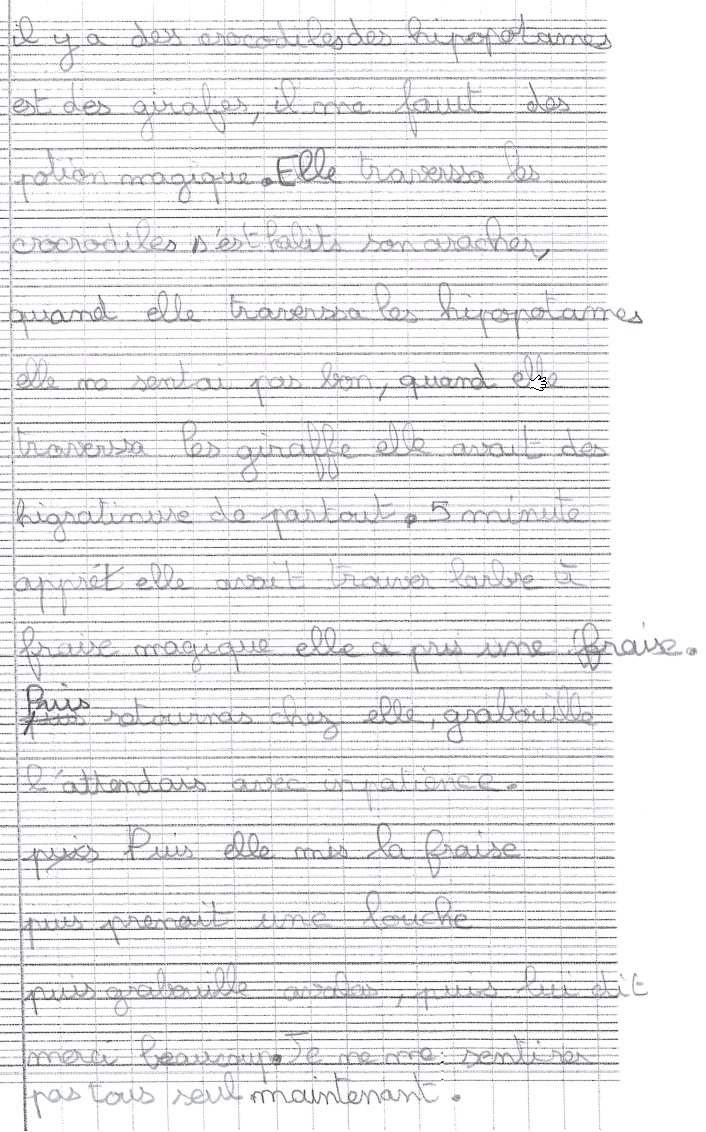 il y a des crocodiles des hipopotames
est des girafes, il me faut des
potion magique. Elle traversa les
crocrodiles s'est habits son aracher,
quand elle traverssa les hipopotames
elle ne sentai pas bon, quand elle
traverssa les giraffe elle avait des
higratinure de partout. 5 minute
apprét elle avait trouver larbre à
fraise magique elle a pris une fraise.
Puis retournas chez elle, grabouille
l'attendais avec inpatience.
Puis elle mis la fraise
puis prenait une louche
puis grabouille avalas, puis lui dit
merci beaucoup. Je ne me sentires
pas tous seul maintenant.